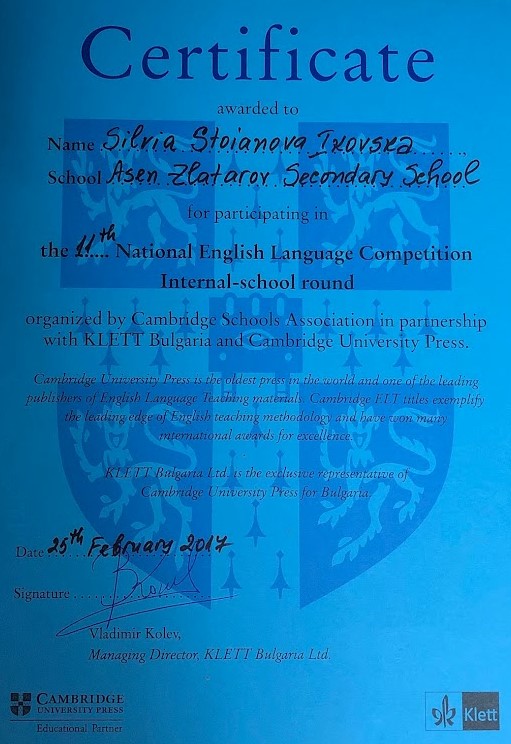 Certificate
awarded to
Name Silvia Stoianova Ikovska
School Asen Zlatarov Secondary School
for participating in
the 11th National English Language Competition
Internal-school round
organized by Cambridge Schools Association in partnership
with KLETT Bulgaria and Cambridge University Press.
Cambridge University Press is the oldest press in the world and one of the leading
publishers of English Language Teaching materials. Cambridge ELT titles exemplify
the leading edge of English teaching methodology and have won many
international awards for excellence.
KLETT Bulgaria Ltd. is the exclusive representative of
Cambridge University Press for Bulgaria.
Date 25th February 2017
Signature
Vladimir Kolev,
Managing Director, KLETT Bulgaria Ltd
CAMBRIDGE
UNIVERSITY PRESS
Educational Partner
Klett